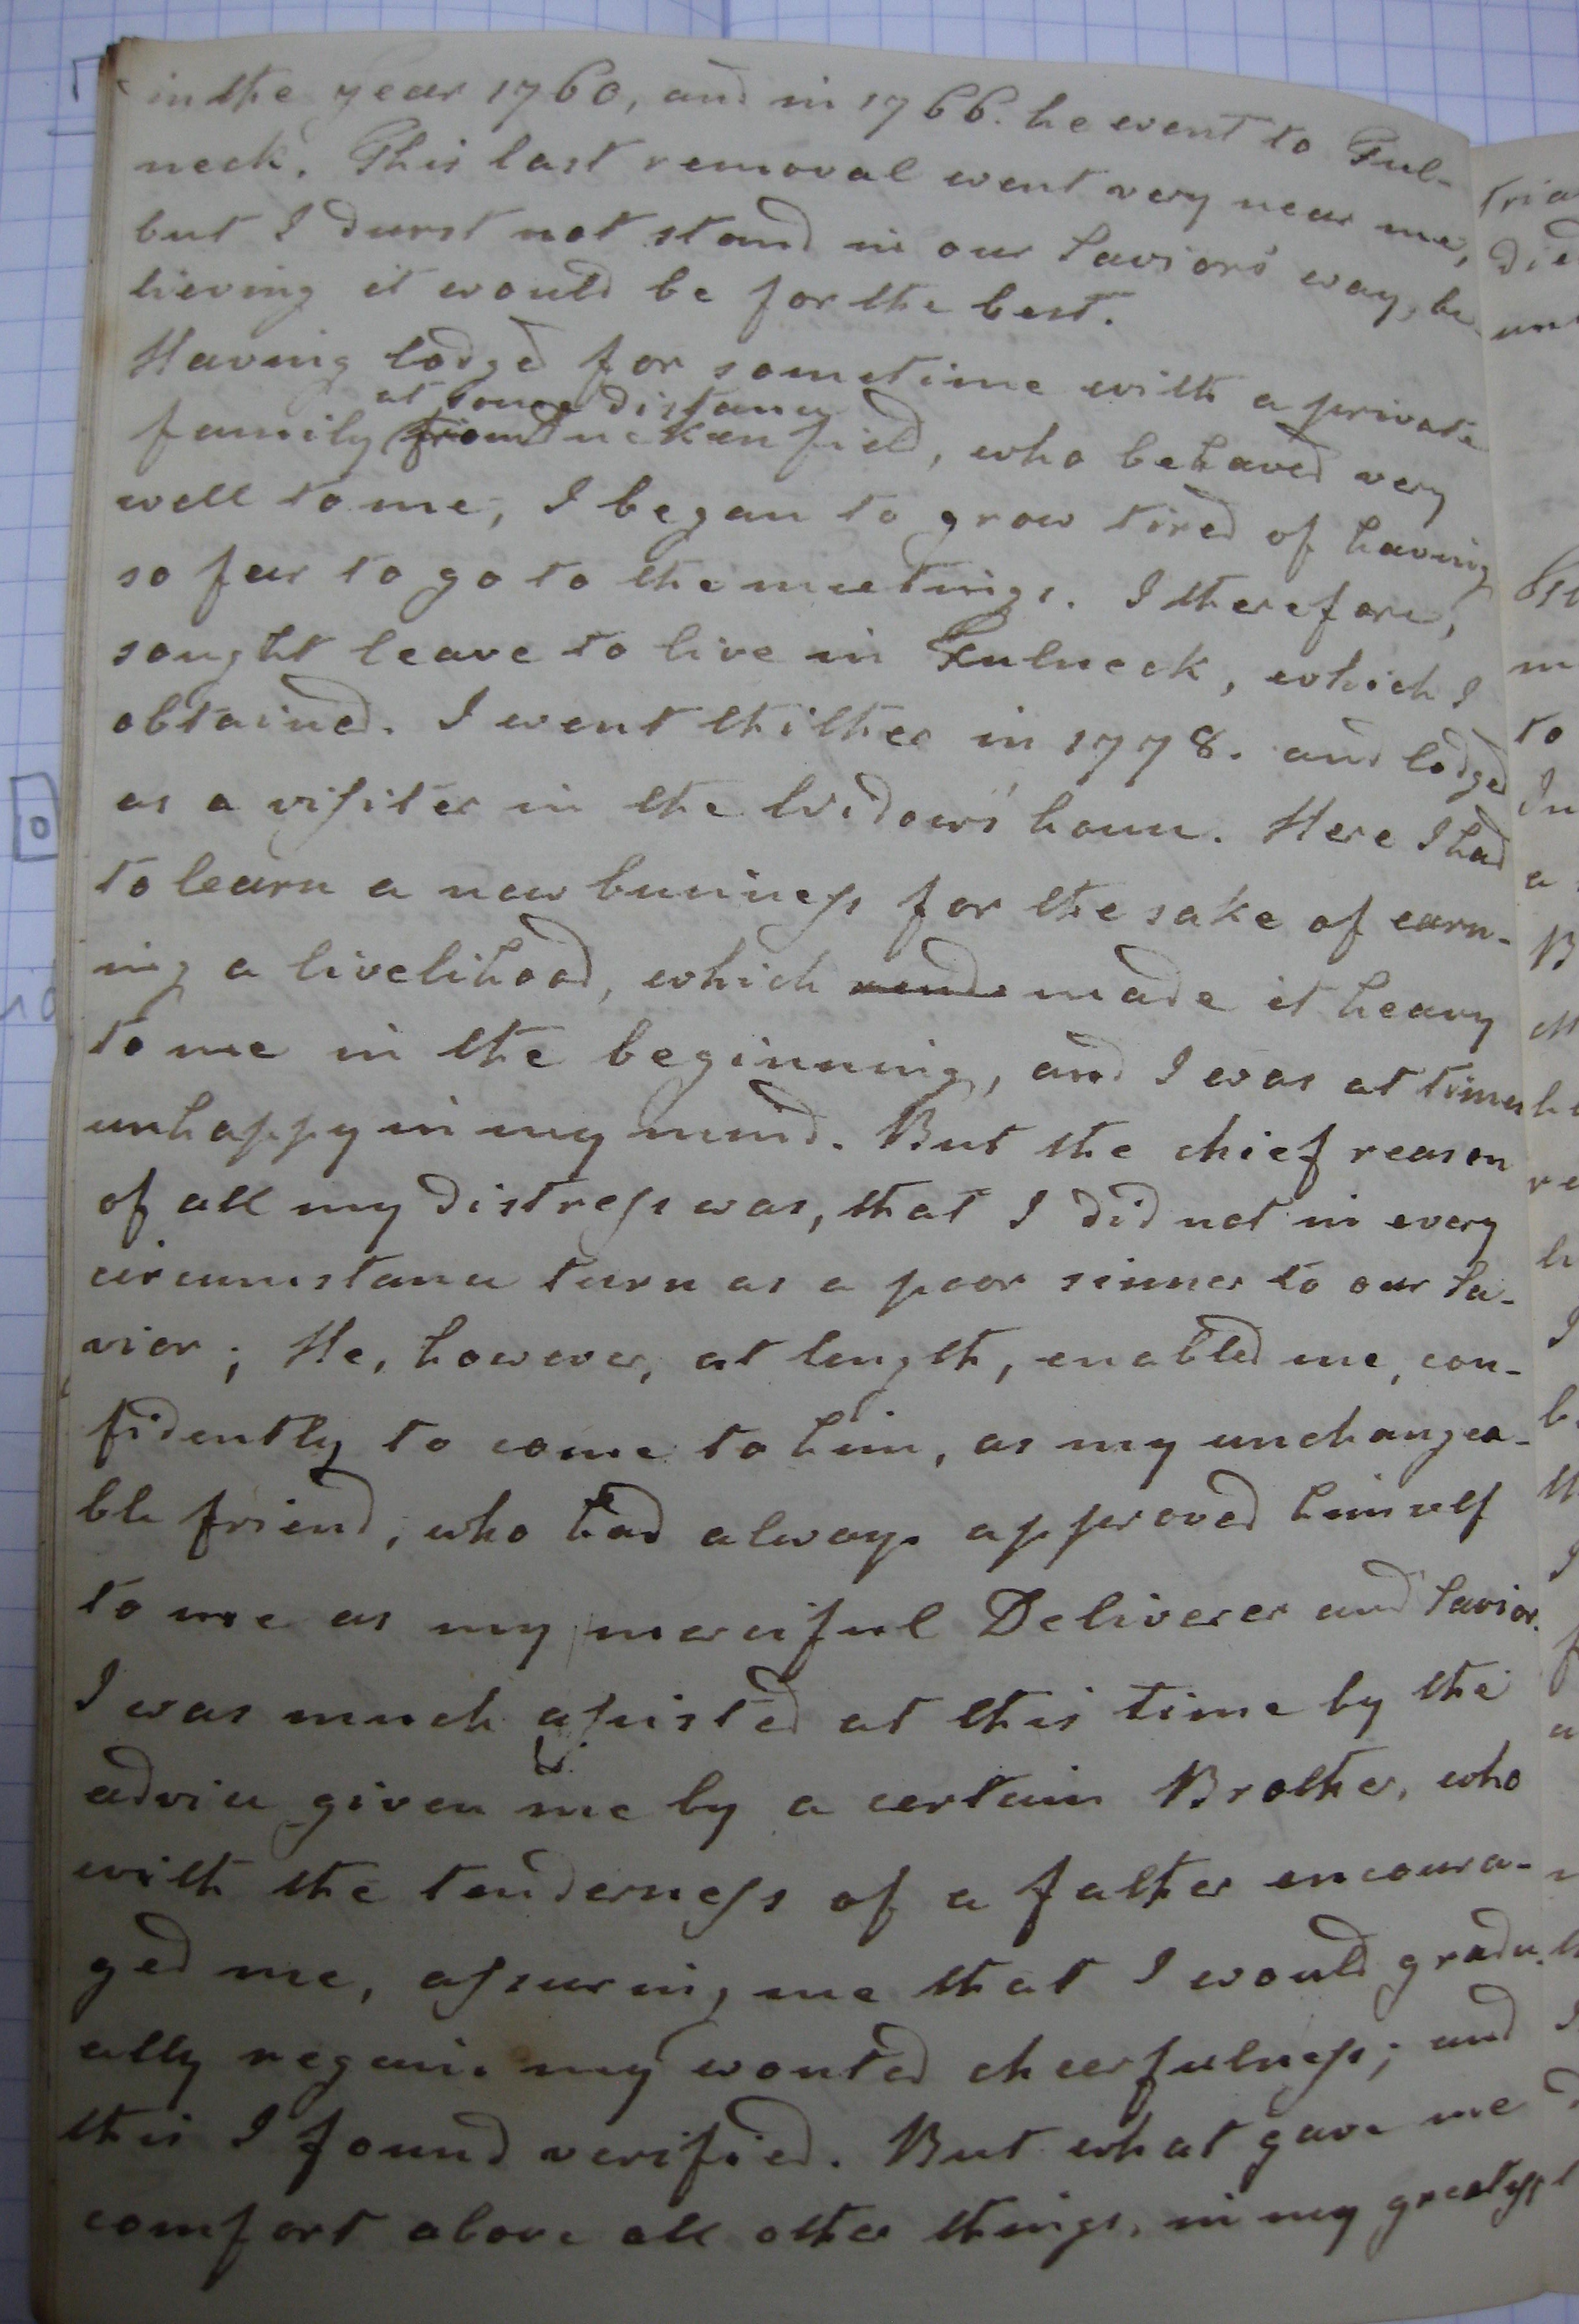 in the year 1760, and in 1766. he went to Ful-
neck. This last removal went very near me,
but I durst not stand in our Saviors' way, be-
lieving it would be for the best.
Having lodged for sometime with a private
at some distance
family from Duckenfield, who behaved very
well to me, I began to grow tired of having
so far to go to the meetings. I therefore,
sought leave to live in Fulneck, which I
obtained. I went thither in 1778. and lodged
as a visiter in the Widows' house. Here I had
to learn a new business for the sake of earn-
ing a livelihood, which made it heavy
to me in the beginning, and I was at times
unhappy in my mind. But the chief reason
of all my distress was, that I did not in every
circumstance turn as a poor sinner to our Sa-
vior; He, however, at length, enabled me, con-
fidently to come to him, as my unchangea-
ble friend, who had always approved himself
to me as my merciful Deliverer and Savior.
I was much assisted at this time by the
advice given me by a certain Brother, who
with the tenderness of a father encoura-
ged me, assuring me that I would gradu-
ally regain my wonted cheerfulness; and
this I found verified. But what gave me
comfort above all other things, in my greatest
tria
died
un
m
to
In
a
B